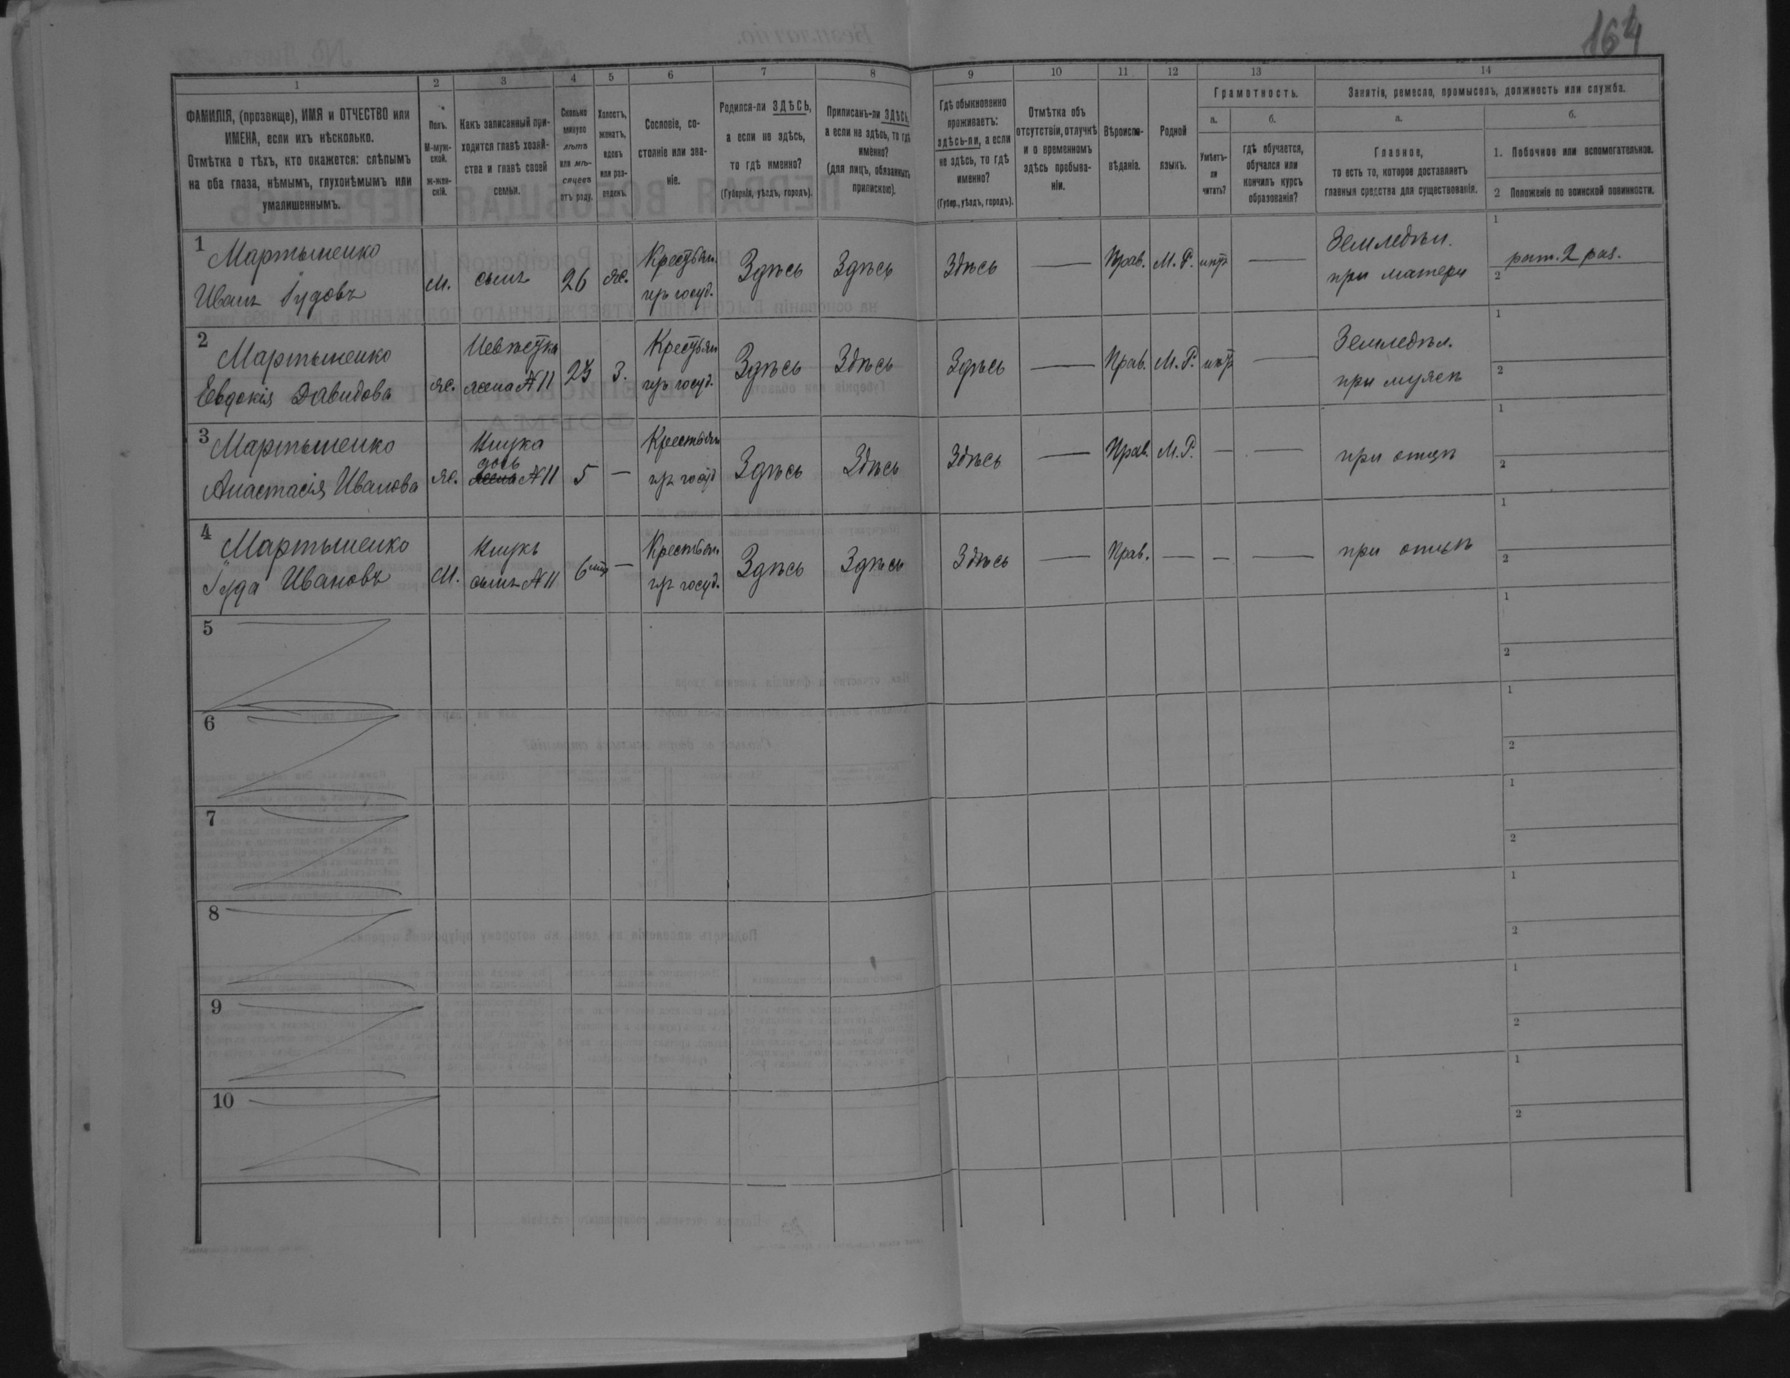 164
1 2 3 4 5 6 7 8 9 10 11 12 13 14
ФАМИЛІЯ, (прозвище), ИМЯ и ОТЧЕСТВО или
ИМЕНА, если ихъ нѣсколько.
Отмѣтка о тѣхъ, кто окажется: слѣпымъ
на оба глаза, нѣмымъ, глухонѣмымъ или
умалишеннымъ.
Полъ.
М-муж-
ской.
ж-жен-
скій.
Какъ записанный при-
ходится главѣ хозяй-
ства и главѣ своей
семьи.
Сколько
минуло
лѣтъ
или мѣ-
сяцевъ
отъ роду.
Холостъ,
женатъ,
вдовъ
или раз-
веденъ.
Сословіе, со-
стояніе или зва-
ніе.
Родился-ли ЗДѢСЬ,
а если не здѣсь,
то гдѣ именно?
(Губернія, уѣздъ, городъ).
Приписанъ-ли ЗДѢСЬ,
а если не здѣсь, то гдѣ
именно?
(для лицъ, обязанныхъ
припискою).
Гдѣ обыкновенно
проживаетъ:
здѣсь-ли, а если
не здѣсь, то гдѣ
именно?
(Губер., уѣздъ, городъ).
Отмѣтка объ
отсутствіи, отлучкѣ
и о временномъ
здѣсь пребыва-
ніи.
Вѣроиспо-
вѣданіе.
Родной
языкъ.
Грамотность.
а.
Умѣетъ-
ли
читать?
б.
гдѣ обучается,
обучался или
кончилъ курсъ
образованія?
Занятіе, ремесло, промыселъ, должность или служба.
а.
Главное,
то есть то, которое доставляетъ
главныя средства для существованія.
б.
1. Побочное или вспомогательное.
2 Положеніе по воинской повинности.
1 Мартыненко
Иванъ Іудовъ
М. сынъ 26 ж.
Крестьян.
изъ госуд.
Здѣсь Здѣсь Здѣсь — Прав. М. Р. нѣтъ —
Земледѣл.
при матери
1
2 рат. 2 раз.
2 Мартыненко
Евдокія Давидова
ж.
Невѣстка
жена №1
23 З.
Крестьян
изъ госуд.
Здѣсь Здѣсь Здѣсь — Прав. М. Р. нѣтъ —
Земледѣл.
при мужѣ
1
2
3 Мартыненко
Анастасія Иванова
ж.
Внука
дочь
№1
5 —
Крестьян
изъ госуд
Здѣсь Здѣсь Здѣсь — Прав. М. Р. — —
при отцѣ
1
2
4 Мартыненко
Іуда Ивановъ
М.
Внукъ
сынъ №1
6 мѣс —
Крестьян
изъ госуд.
Здѣсь Здѣсь Здѣсь — Прав. — — —
при отцѣ
1
2
5
1
2
6
1
2
7
1
2
8
1
2
9
1
2
10
1
2